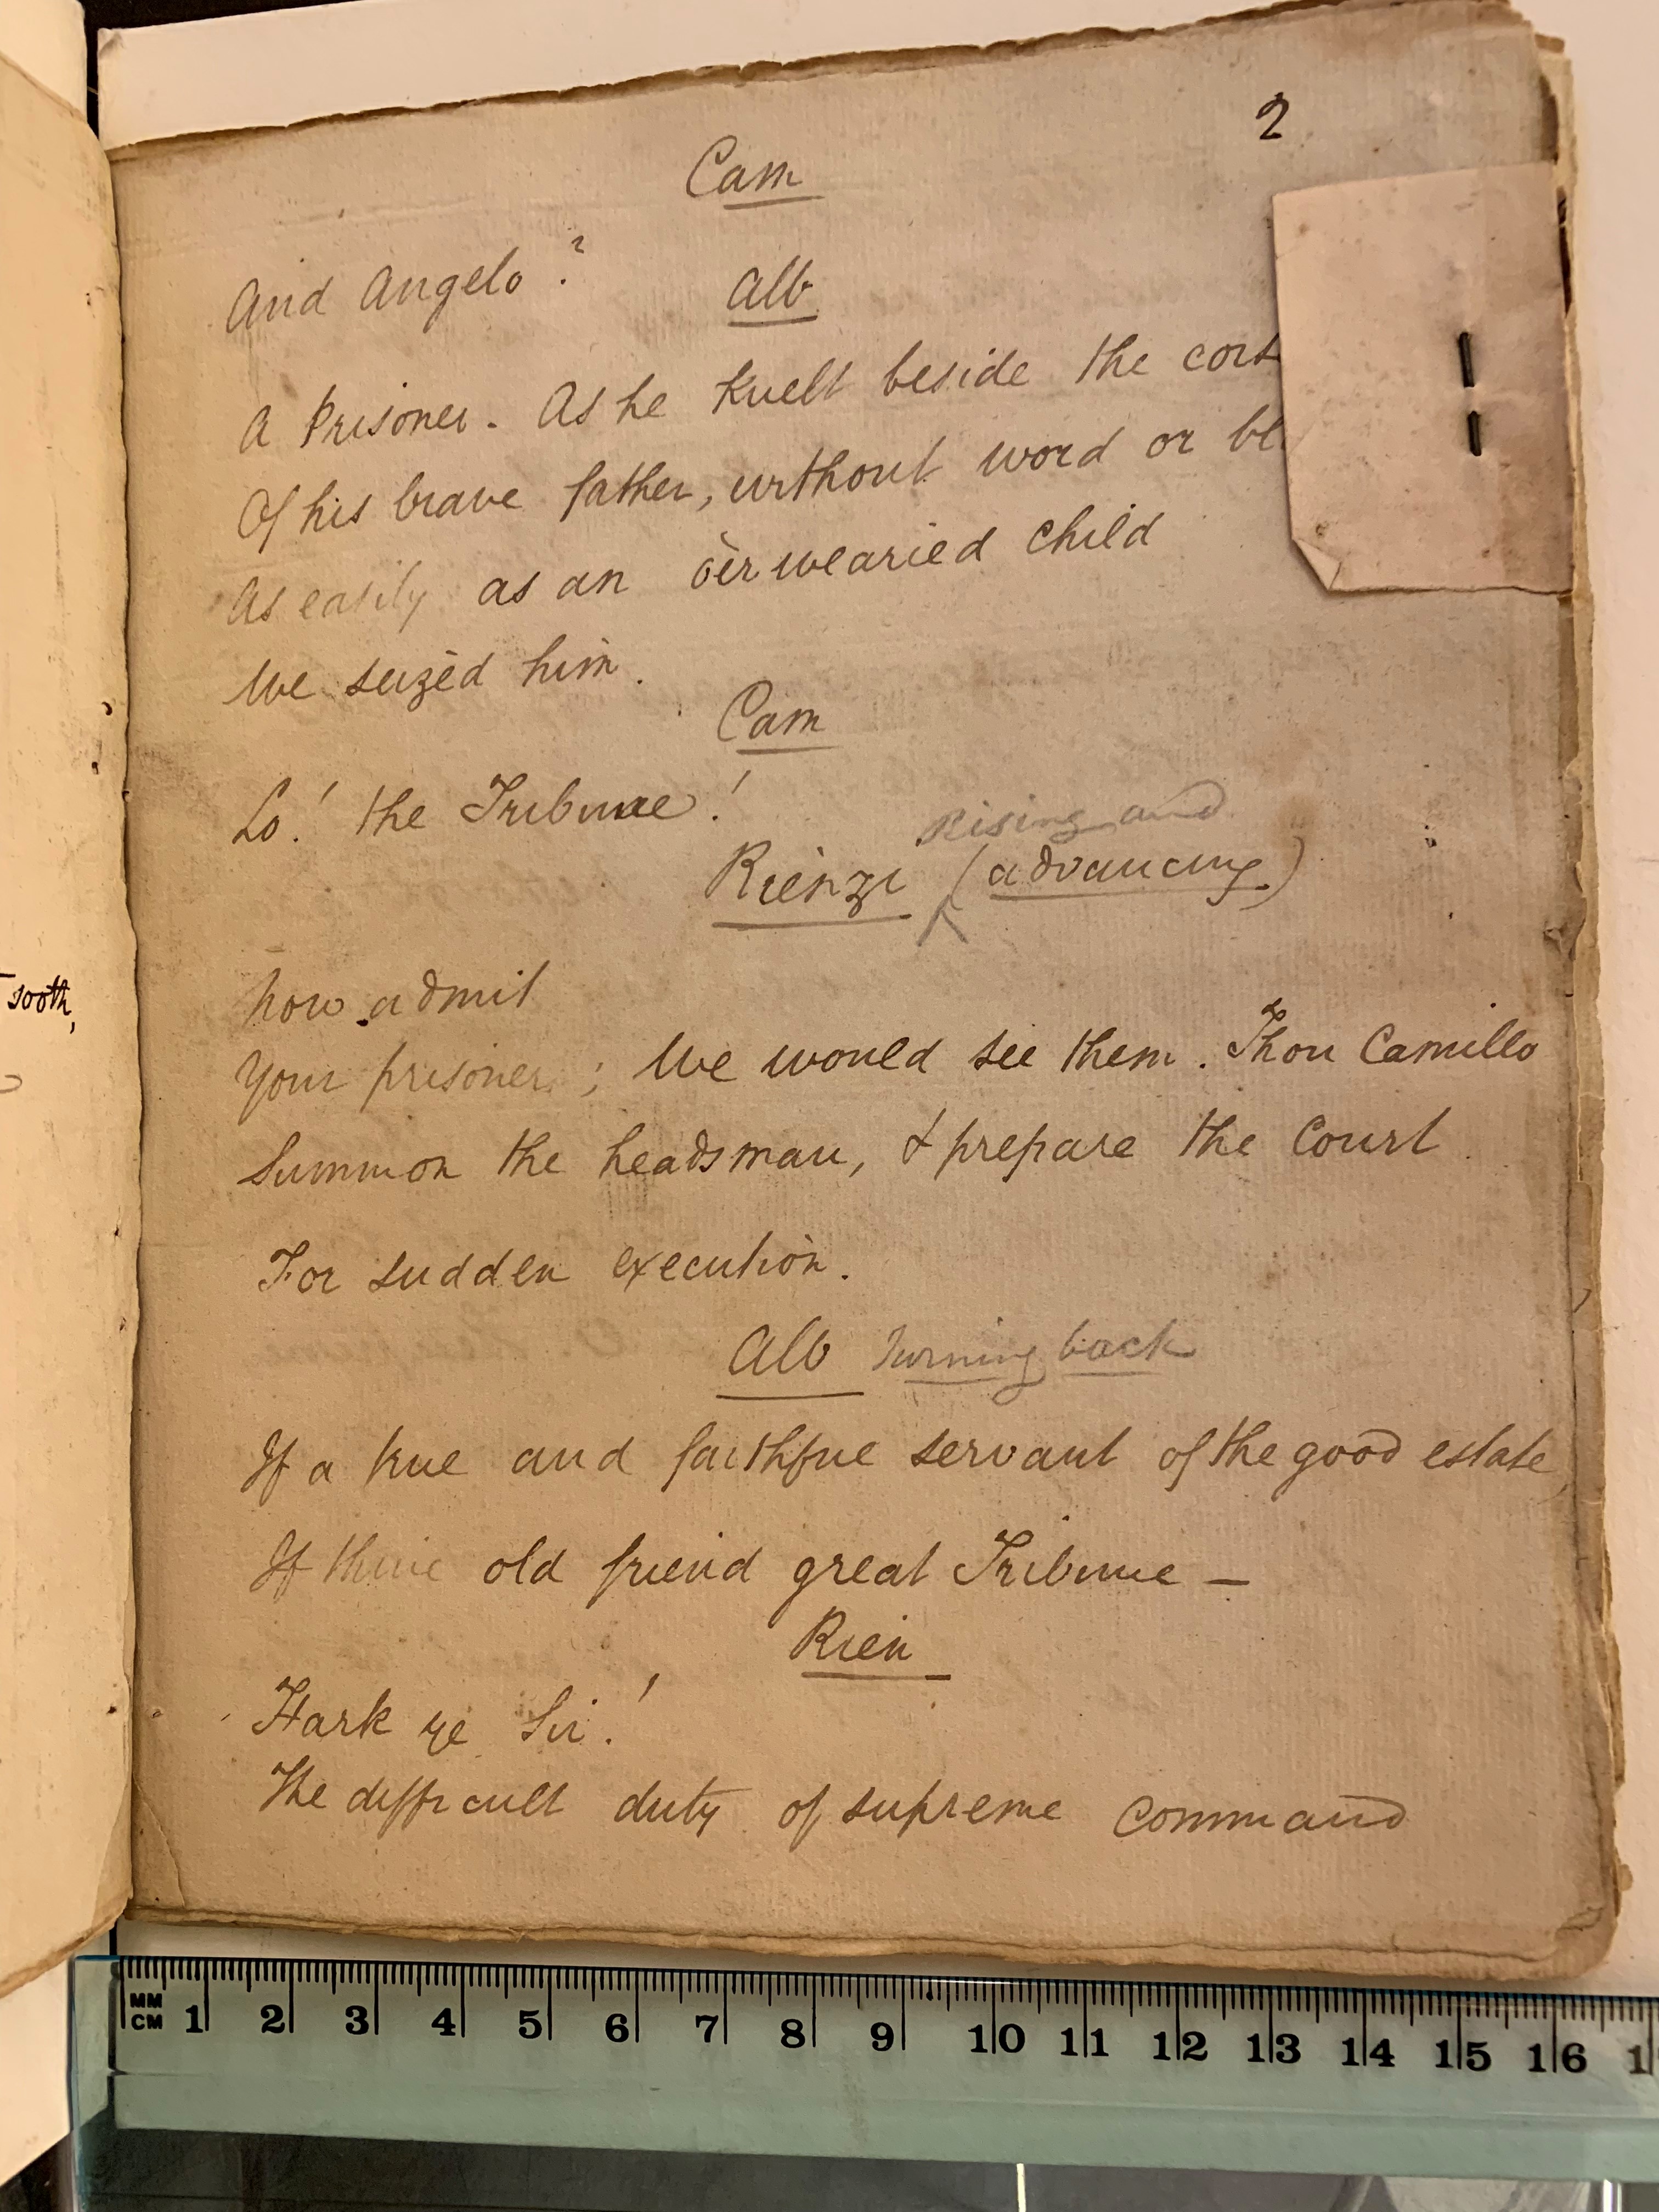 2
Cam
And Angelo?
Alb
A Prisoner. As he knelt beside the cors
Of his brave father, without word or bl
As easily as an o'erwearied child
We seized him.
Cam
Lo! the Tribune!
Rising and
Rienzi (advancing)
now admit
Your prisoner; We would see them. Thou Camillo
Summon the headsman, & prepare the Court
For sudden execution.
Alb turning back
If a true and faithful servant of the good estate,
If thine old friend great Tribune —
Rien
Hark ye Sir!
The difficult duty of supreme command
sooth,
MM
CM 1 2 3 4 5 6 7 8 9 10 11 12 13 14 15 16 1